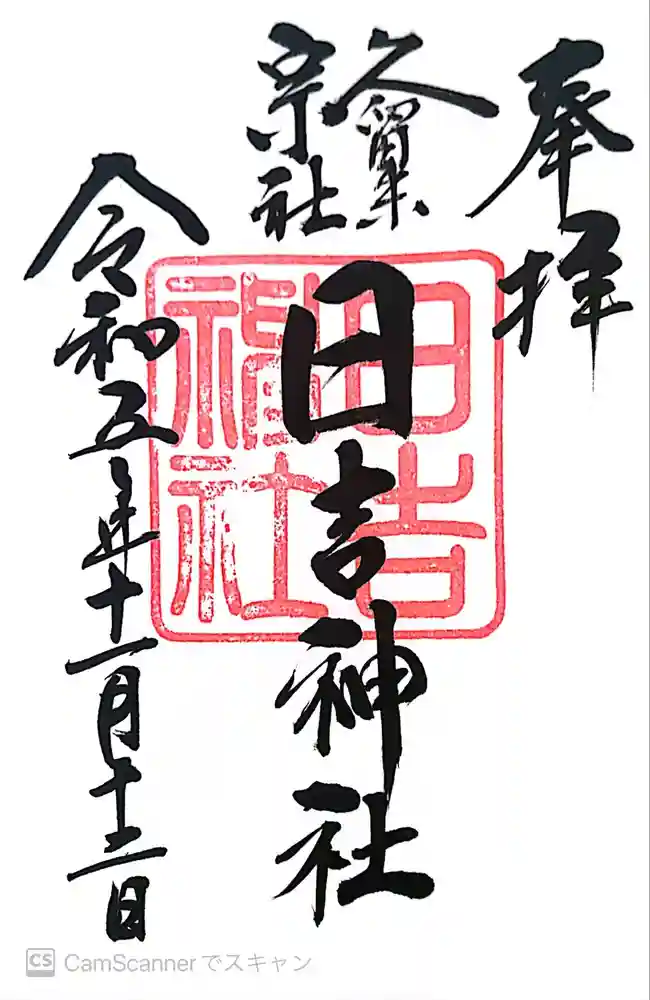 奉拝
久留米
宗社
日吉神社
令和五年十一月十二日
日吉
神社
CS CamScannerでスキャン